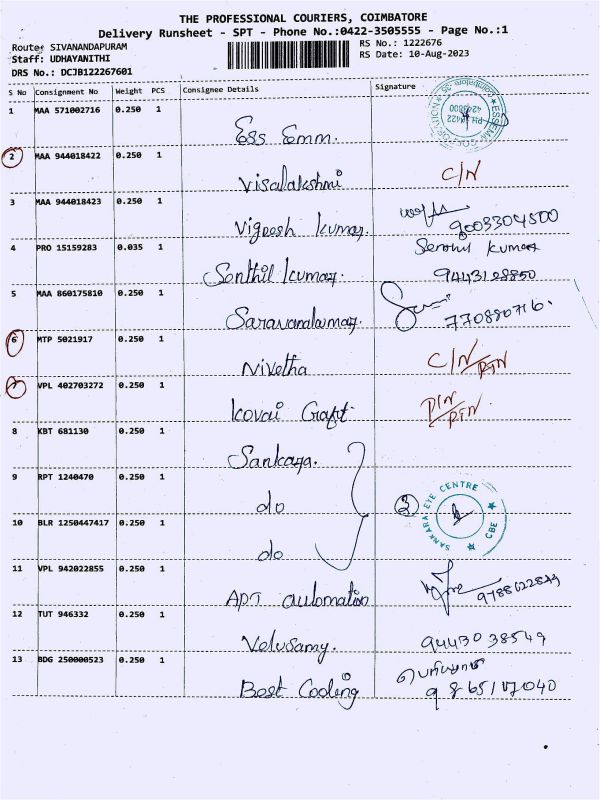 THE PROFESSIONAL COURIERS, COIMBATORE
Delivery Runsheet - SPT - Phone No.:0422-3505555 - Page No.:1
Route: SIVANANDAPURAM
Staff: UDHAYANITHI
DRS No.: DCJB122267601
RS No.: 1222676
RS Date: 10-Aug-2023
S No Consignment No Weight PCS Consignee Details Signature
1 MAA 571002716 0.250 1
Ess Emm.
2 MAA 944018422 0.250 1
Visalakshmi C/N
3 MAA 944018423 0.250 1
Vignesh Kumar. 9003304500
4 PRO 15159283 0.035 1 Senthil Kumar
Senthil Kumar. 9443128850
5 MAA 860175810 0.250 1
Saravanakumar 770880716.
6 MTP 5021917 0.250 1
Nivetha C/N/RTN
7 VPL 402703272 0.250 1
Kovai Craft. D/N/RTN.
8 KBT 681130 0.250 1
Sankara.
9 RPT 1240470 0.250 1
do 3 SANKARA EYE CENTRE CBE
10 BLR 1250447417 0.250 1
do
11 VPL 942022855 0.250 1
APT automation 9788122849
12 TUT 946332 0.250 1
Velusamy. 9443038549
13 BDG 250000523 0.250 1
Best Cooling 9865107040